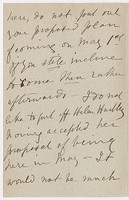 here, do not put out
your proposed plan
of coming on May 1st
if you still incline
to come then rather
afterwards – I do not
like to put off Helen
having accepted her
proposal of being
here in May – It
would not be much